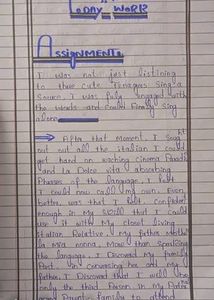 TODAY WORK
ASSIGNMENT
I was not just listening
to three cute Teenagers Sing a
Source I was fully engaged with
the words and could Finally Sing
along
After that moment, I Sought
out all the italian I could
get hand on waching cinema Paradi
and La Dolce vita absorbing
Phases of the language, I felt
I could now call my own. Even
better, was that I felt confident
enough in my skill that I could
use it with my closest living
italian Relative, my father's mother
la mia nonna. More than speaking
the language, I Discovered my family's
Past. In conversing her and my
father, I Discover that I will be
only the third Person in my Paternal
grand Parent's family to attend